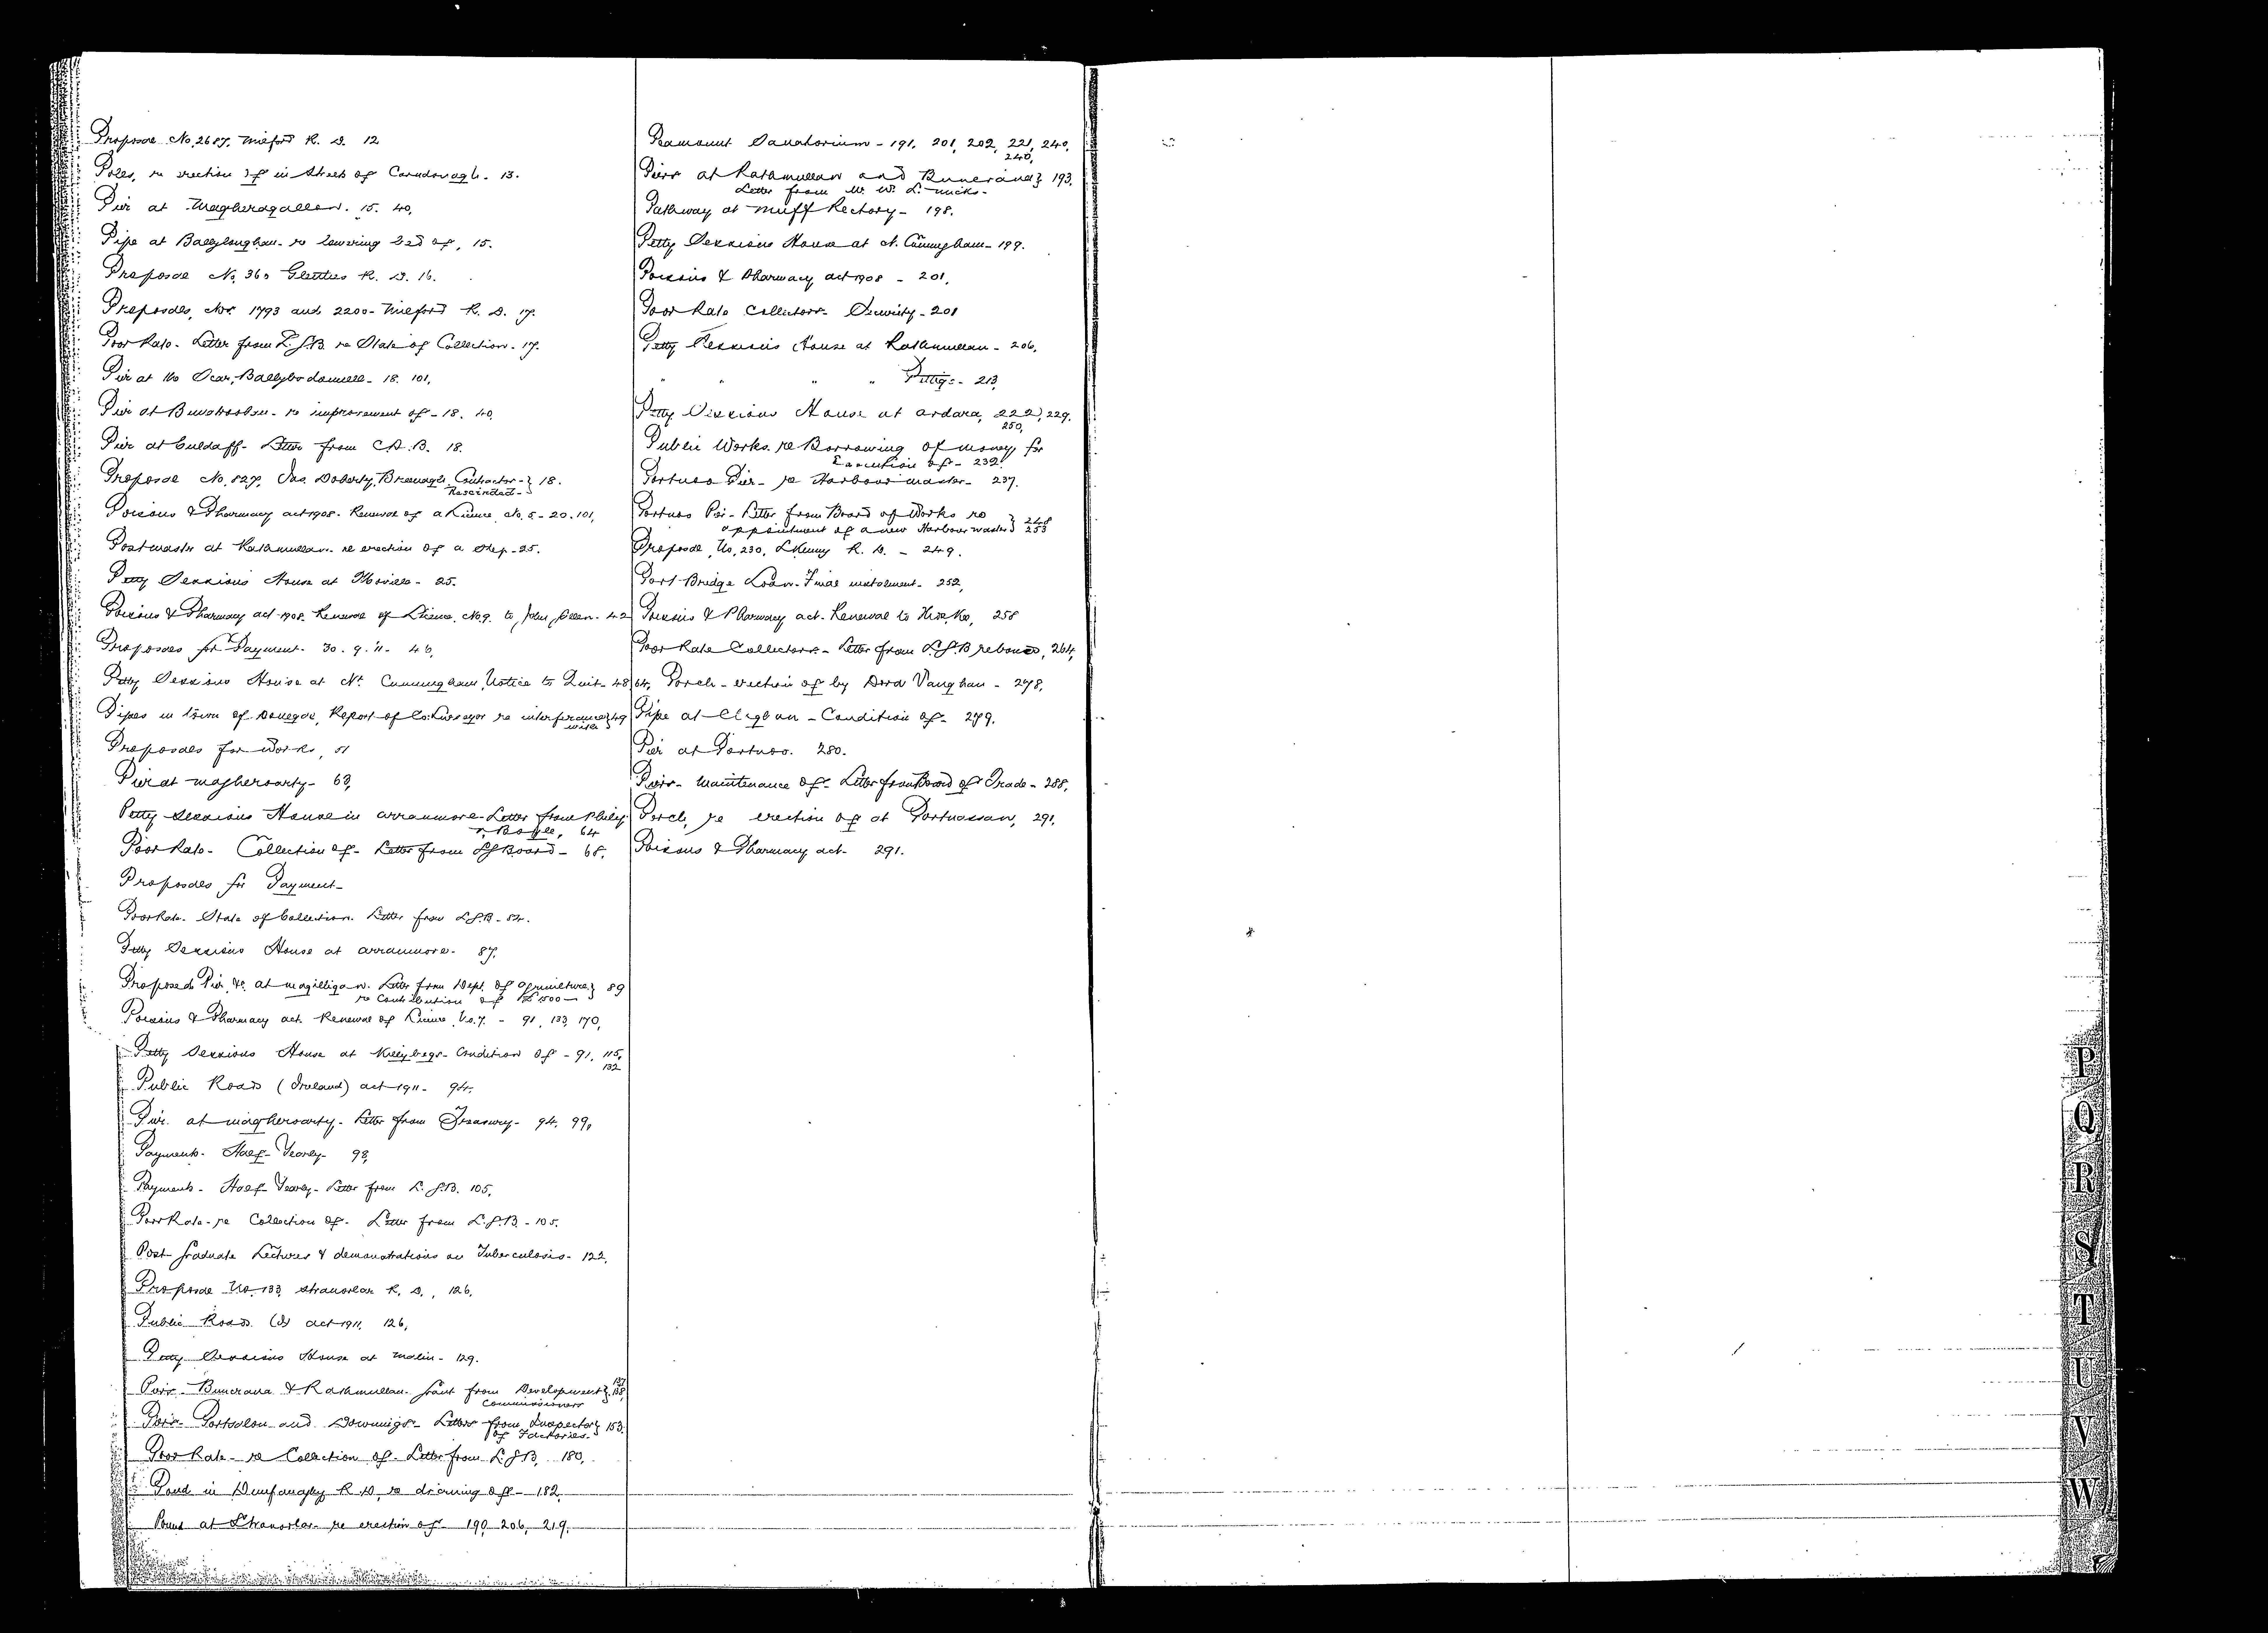 Proposal No. 2687. Milford R. D. 12
Poles, re erection of in Streets of Carndonagh. 13.
Pier at Magheragallen. 15. 40,
Pipe at Ballyloughan - re lowering bed of, 15.
Proposal No. 360 Glenties R. D. 16.
Proposals, Nos. 1793 and 2200 - Milford R. D. 17.
Poor Rate - Letter from L.G.B. re State of Collection - 17.
Pier at the Scar, Ballybodonnell - 18. 101,
Pier at - re improvement of - 18. 40,
Pier at Culdaff - Letter from C.D.B. 18.
Proposal No. 827. Jas. Doherty, Contractor - } 18.
Rescinded -
Poisons & Pharmacy act 1908. Renewal of a Licence, No. 5 - 20. 101,
Postmaster at Rathmullan - re erection of a Step - 25.
Petty Sessions House at Moville - 25.
Poisons & Pharmacy act 1908. Renewal of Licence, No. 9. to John - 42
Proposals for Payment - 30. 9. '11 - 46,
Petty Sessions House at Nt. Cunningham, Notice to Quit - 48, 64,
Pipes in town of Donegal, Report of Co. Surveyor re interference } 49
with
Proposals for Works, 51
Pier at Magheroarty - 63,
Petty Sessions House in Arranmore - Letter from Philip
Boyle, 64
Poor Rate - Collection of - Letter from L G Board - 68.
Proposals for Payment -
Poor Rate - State of Collection. Letter from L.G.B. - 84.
Petty Sessions House at Arranmore - 87.
Proposed Pier, &c. at Magilligan. Letter from Dept. of Agriculture } 89
re Contribution of £1500 -
Poisons & Pharmacy act. Renewal of Licence, No. 7. - 91, 133, 170,
Petty Sessions House at Killybegs - Condition of - 91, 115,
132
Public Roads (Ireland) act 1911 - 94.
Pier at Magheroarty - Letter from Treasury - 94. 99,
Payments - Half-Yearly - 98,
Payments - Half Yearly - Letter from L. G.B. 105,
Poor Rate - re Collection of - Letter from L. G.B. - 105.
Post Graduate Lectures & demonstrations on Tuberculosis - 122,
Proposal No. 133, Stranorlar R. D., 126,
Public Roads (I) act 1911, 126,
Petty Sessions House at Malin - 129.
Piers - Buncrana & Rathmullan - Grant from Development } 137
138,
Commissioners
Piers - Portsalon and Downings - Letters from Inspector } 153.
of Factories -
Poor Rate - re Collection of - Letter from L. G.B. 180,
Pond in Dunfanaghy R. D, re draining of - 182,
Pound at Stranorlar - re erection of - 190, 206, 219,
Peamount Sanatorium - 191, 201, 202, 221, 240,
240,
Piers at Rathmullan and Buncrana } 193.
Letter from Mr. W. L. Micks -
Pathway at Muff Rectory - 198.
Petty Sessions House at N. Cunningham - 199.
Poisons & Pharmacy act 1908 - 201,
Poor Rate Collectors - Security - 201
Petty Sessions House at Rathmullan - 206,
" " " " Pettigo - 213,
Petty Sessions House at Ardara, 222, 229.
250,
Public Works re Borrowing of money for
Execution of - 232
Portnoo Pier - re Harbour master - 237.
Portnoo Pier - Letter from Board of Works re
appointment of a new Harbour master } 248
253
Proposal, No. 230, L'Kenny R. D. - 249.
Port Bridge Loan - Final instalment - 252,
Poisons & Pharmacy act - Renewal to 258
Poor Rate Collectors - Letter from L.G.B re bonds, 264,
Porch - erection of by Dora Vaughan - 278,
Pipe at Cleghan - Condition of - 279.
Pier at Portnoo. 280.
Piers - Maintenance of - Letter from Board of Trade - 288,
Porch, re erection of at Portnassan, 291,
Poisons & Pharmacy act - 291.
P
Q
R
S
T
U
V
W